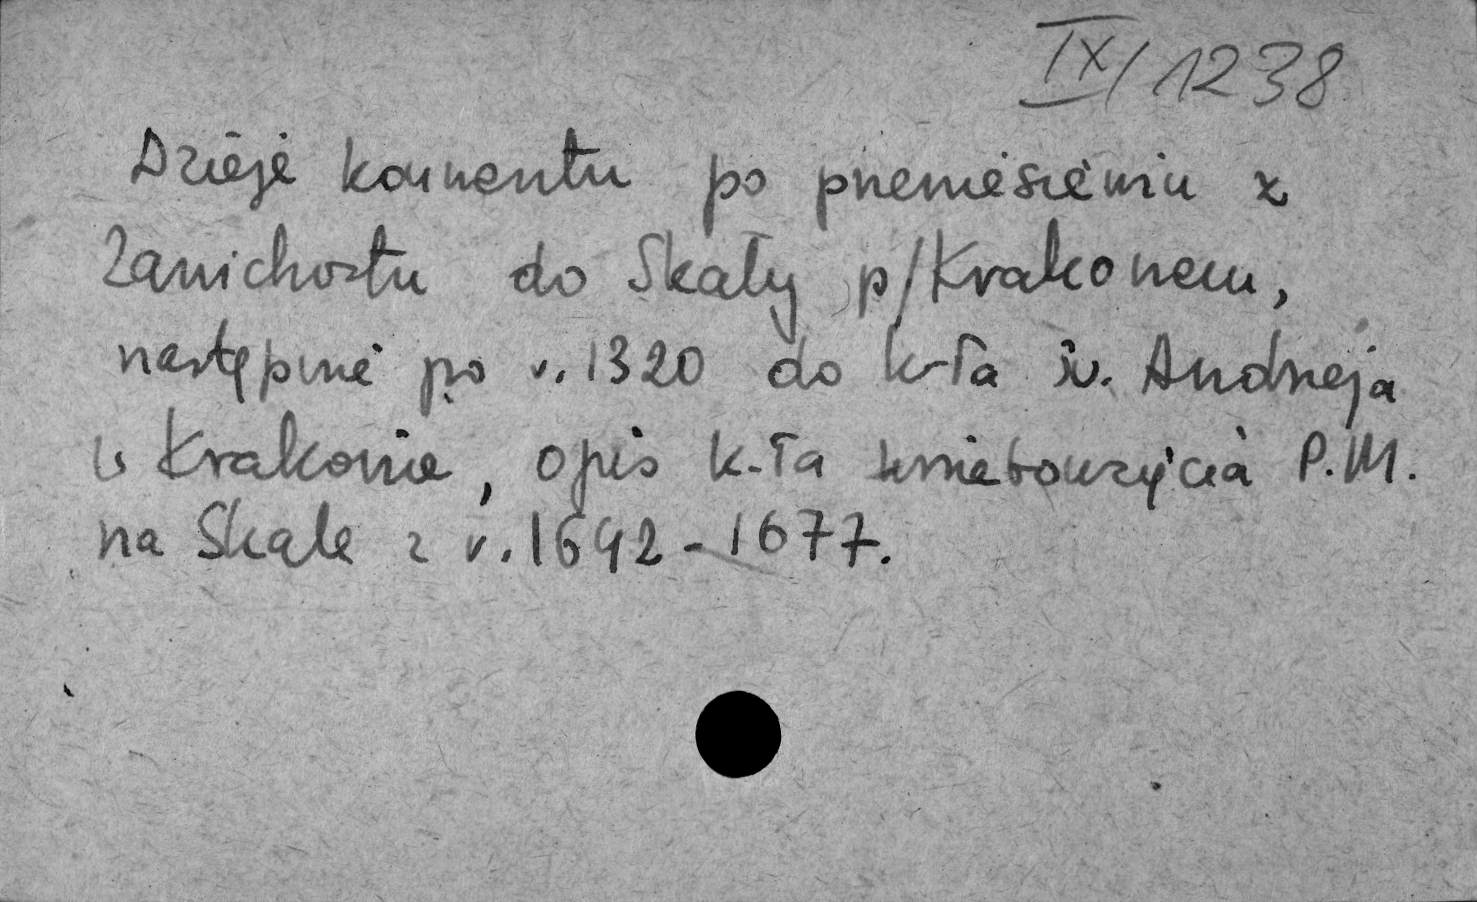 IX/1238
Dzieje konwentu po przeniesieniu z
Zawichostu do Skały p/Krakowem,
następnie po r. 1320 do k-ła św. Andrzeja
w Krakowie, opis k-ła Wniebowzięcia P.M.
na Skale z r. 1642-1677.